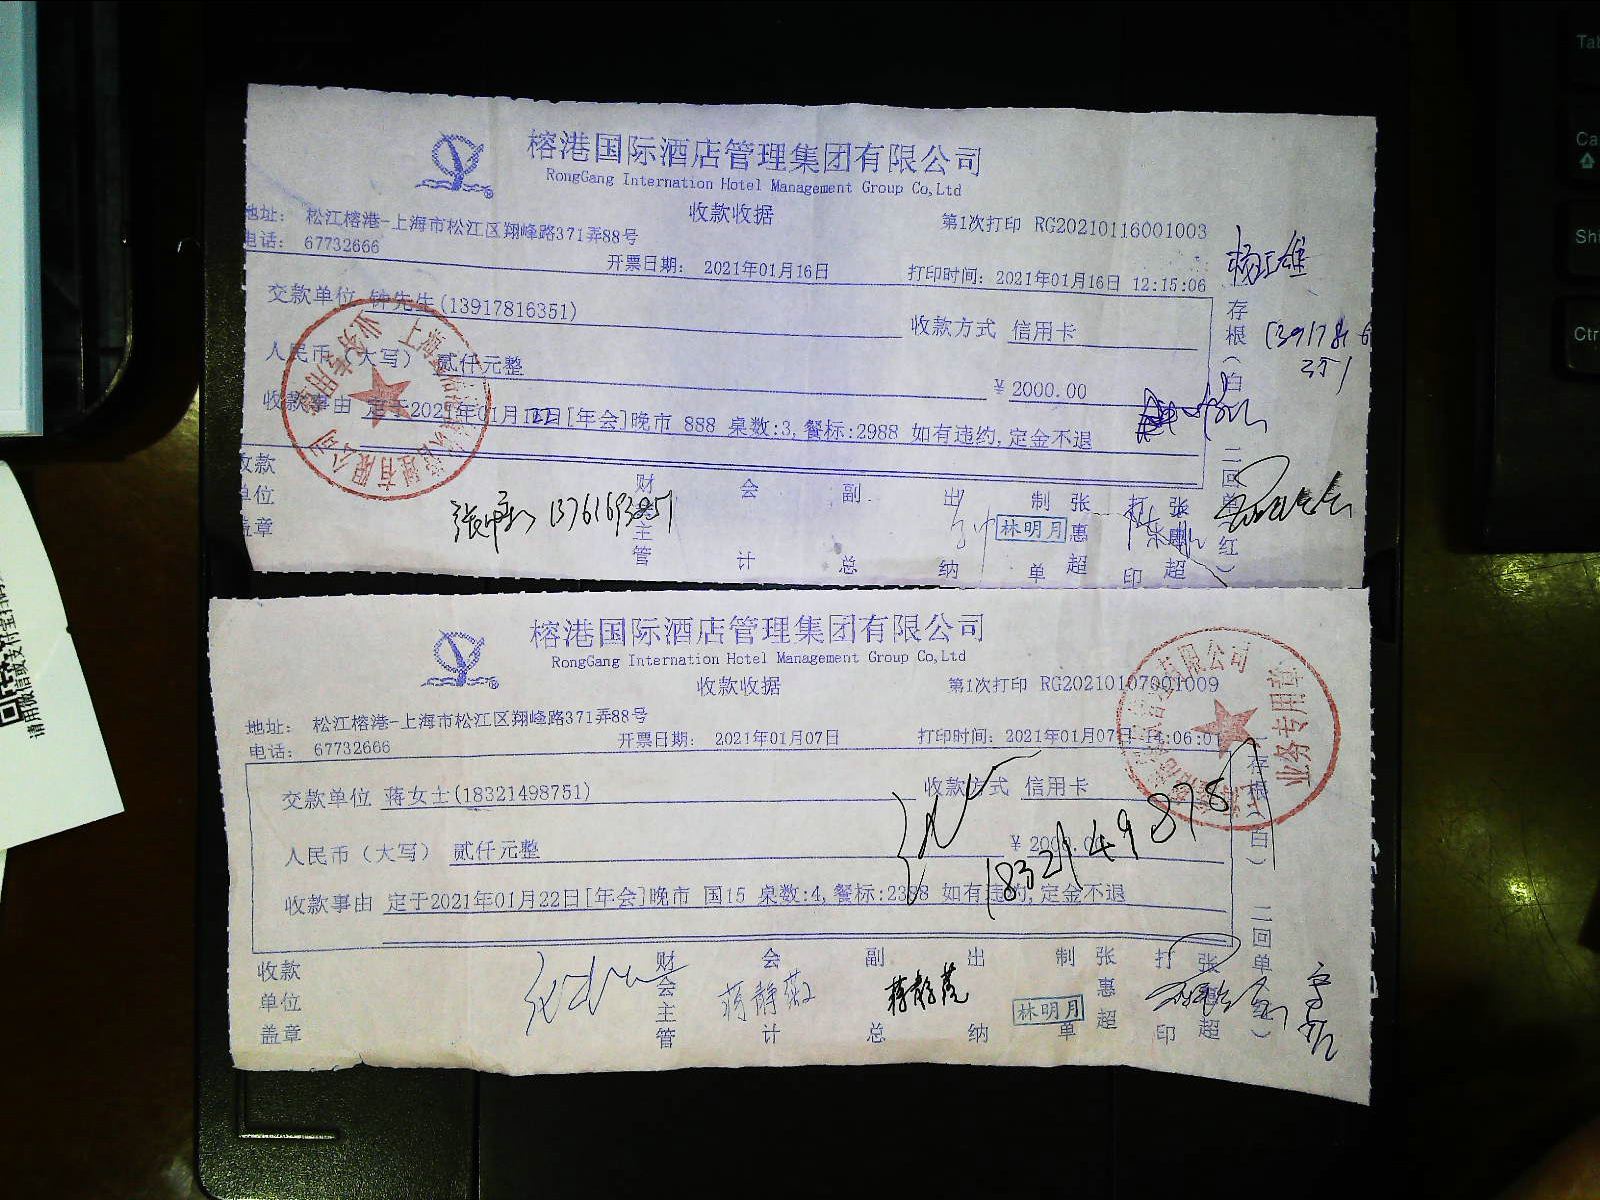 榕港国际酒店管理集团有限公司
RongGang Internation Hotel Management Group Co,Ltd
收款收据
第1次打印 RG20210116001003
地址: 松江榕港-上海市松江区翔峰路371弄88号
电话: 67732666
开票日期: 2021年01月16日
打印时间: 2021年01月16日 12:15:06
交款单位 钟先生(13917816351)
收款方式 信用卡
人民币（大写） 贰仟元整
¥ 2000.00
收款事由 定于2021年01月22日[年会]晚市 888 桌数:3,餐标:2988 如有违约,定金不退
存根（白） 二回单（红）
收款单位盖章
13761693851
财会主管 会计 副总 出纳 制单 张惠超 打印 张惠超
林明月
榕港国际酒店管理集团有限公司
RongGang Internation Hotel Management Group Co,Ltd
收款收据
第1次打印 RG20210107001009
地址: 松江榕港-上海市松江区翔峰路371弄88号
电话: 67732666
开票日期: 2021年01月07日
打印时间: 2021年01月07日 14:06:01
业务专用章
交款单位 蒋女士(18321498751)
收款方式 信用卡
人民币（大写） 贰仟元整
¥ 2000.00
收款事由 定于2021年01月22日[年会]晚市 国15 桌数:4,餐标:2388 如有违约,定金不退
存根（白） 二回单（红）
收款单位盖章
财会主管 会计 副总 出纳 制单 张惠超 打印 张惠超
林明月
请用微信或支付宝扫